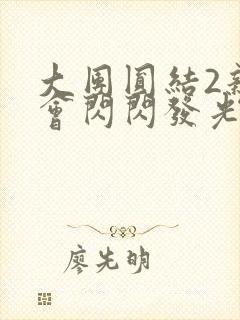 大團圓結2新
會閃閃發光
廖先明